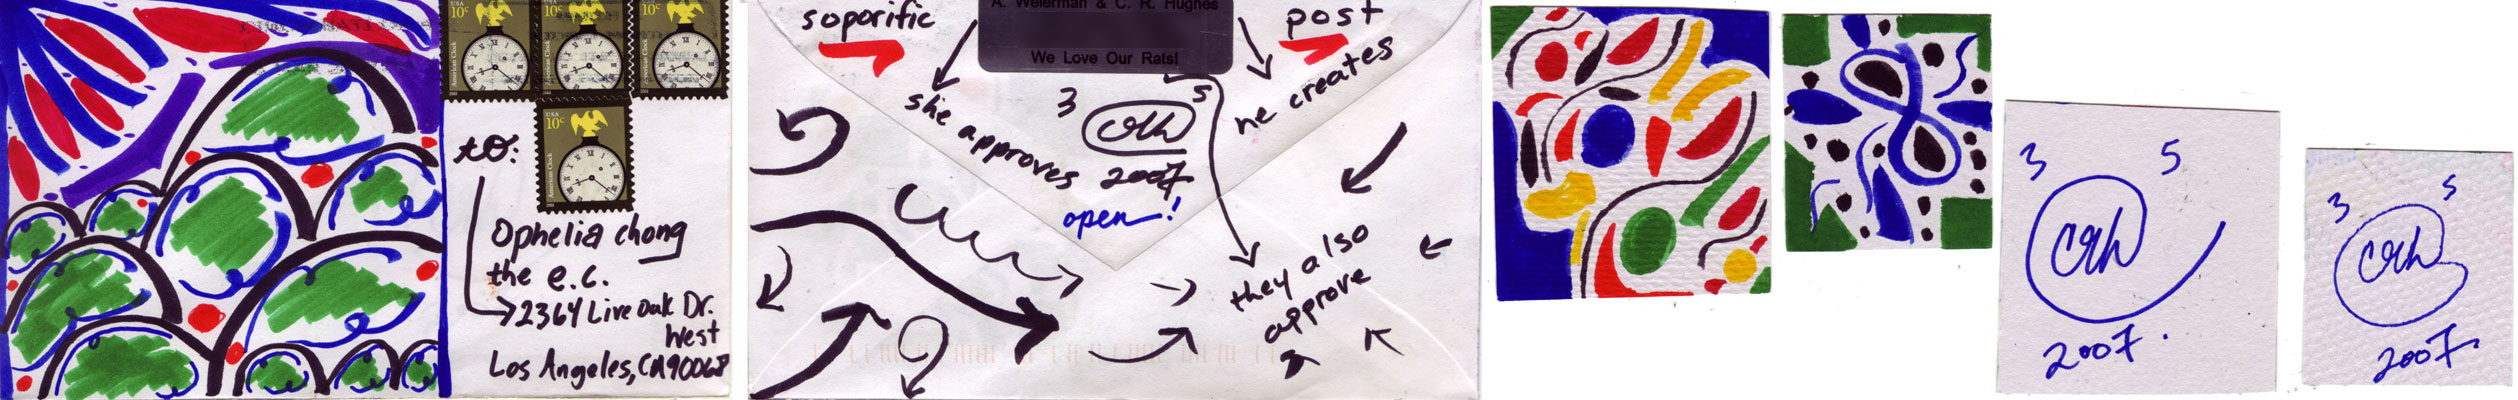 USA
10c
American Clock
USA
10c
American Clock
USA
10c
American Clock
USA
10c
American Clock
to:
Ophelia Chong
the e.c.
2364 Live Oak Dr.
West
Los Angeles, CA 90068
soporific
A. Weierman & C. R. Hughes
We Love Our Rats!
post
she approves
he creates
3
crh
5
2007
open!
they also
approve
3
5
crh
2007.
3
5
crh
2007